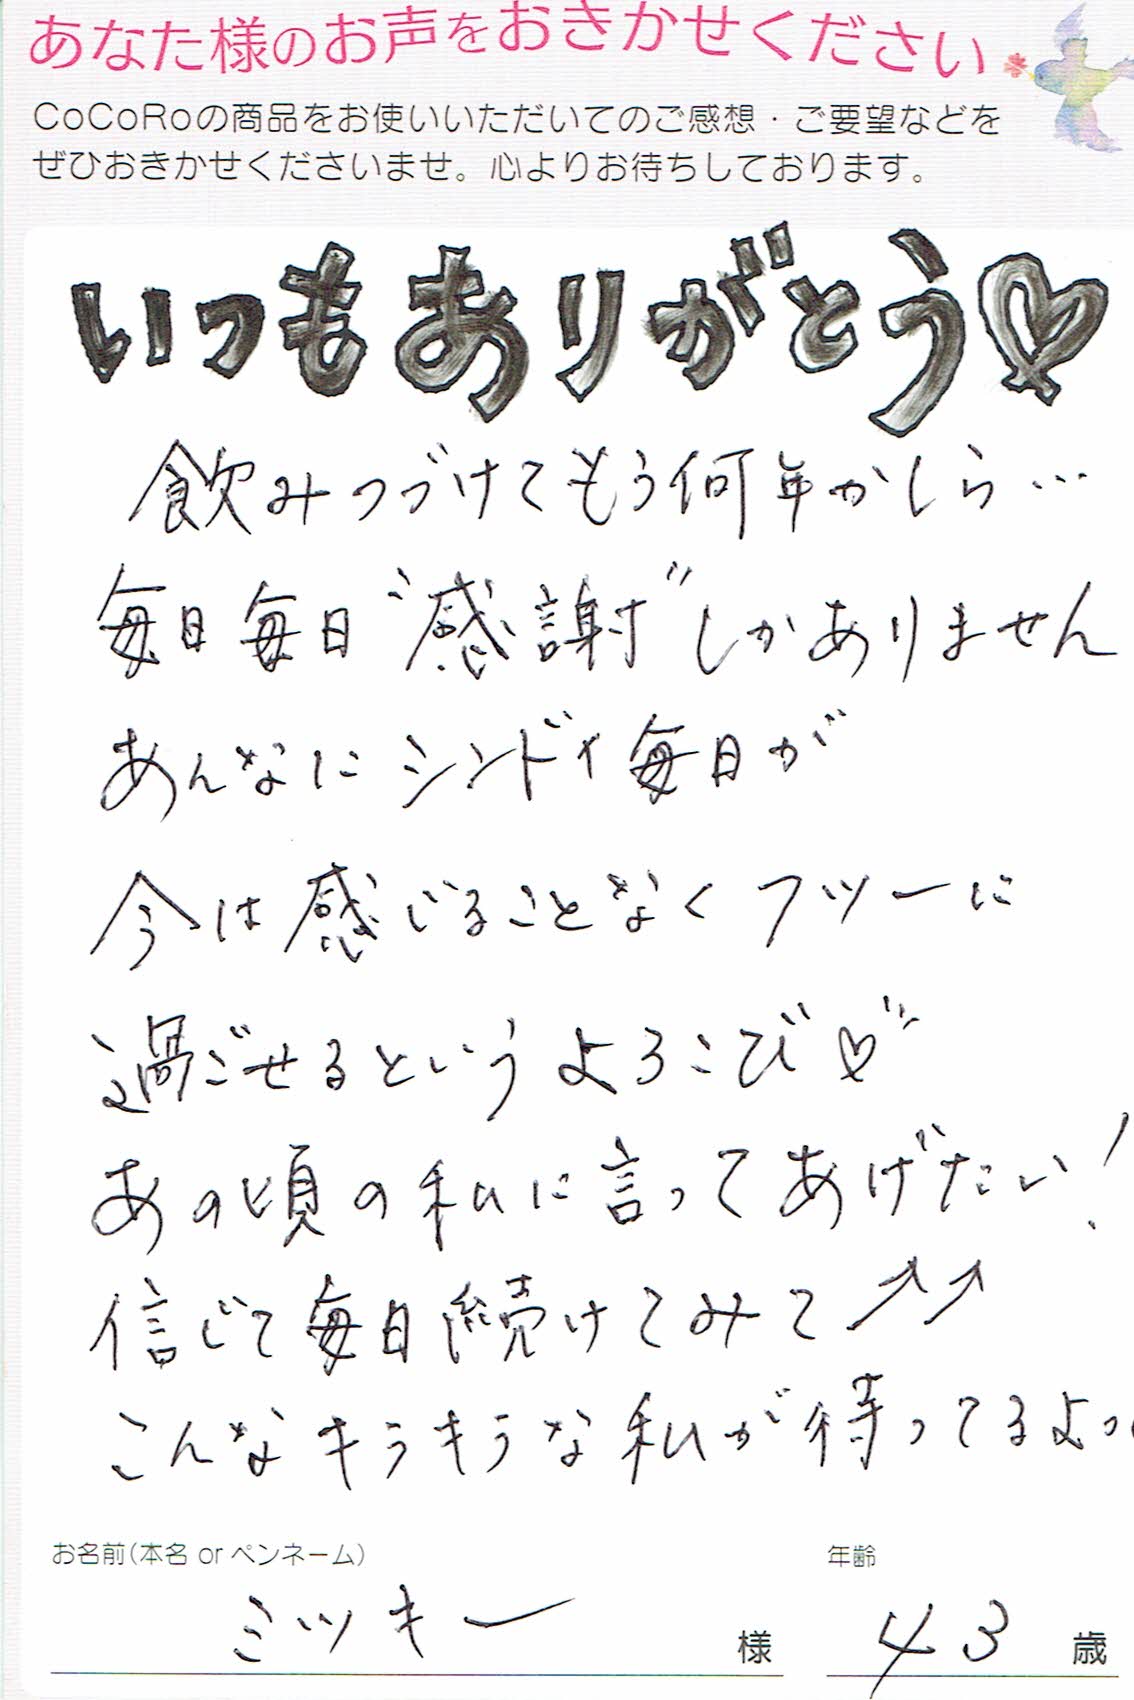 あなた様のお声をおきかせください
CoCoRoの商品をお使いいただいてのご感想・ご要望などを
ぜひおきかせくださいませ。心よりお待ちしております。
いつもありがとう♡
飲みつづけてもう何年かしら…
毎日毎日“感謝”しかありません
あんなにシンドイ毎日が
今は感じることなくフツーに
過ごせるというよろこび♡
あの頃の私に言ってあげたい!
信じて毎日続けてみて↗↗
こんなキラキラな私が待ってるよっ
お名前(本名 or ペンネーム)
ミツキー 様
年齢
43 歳